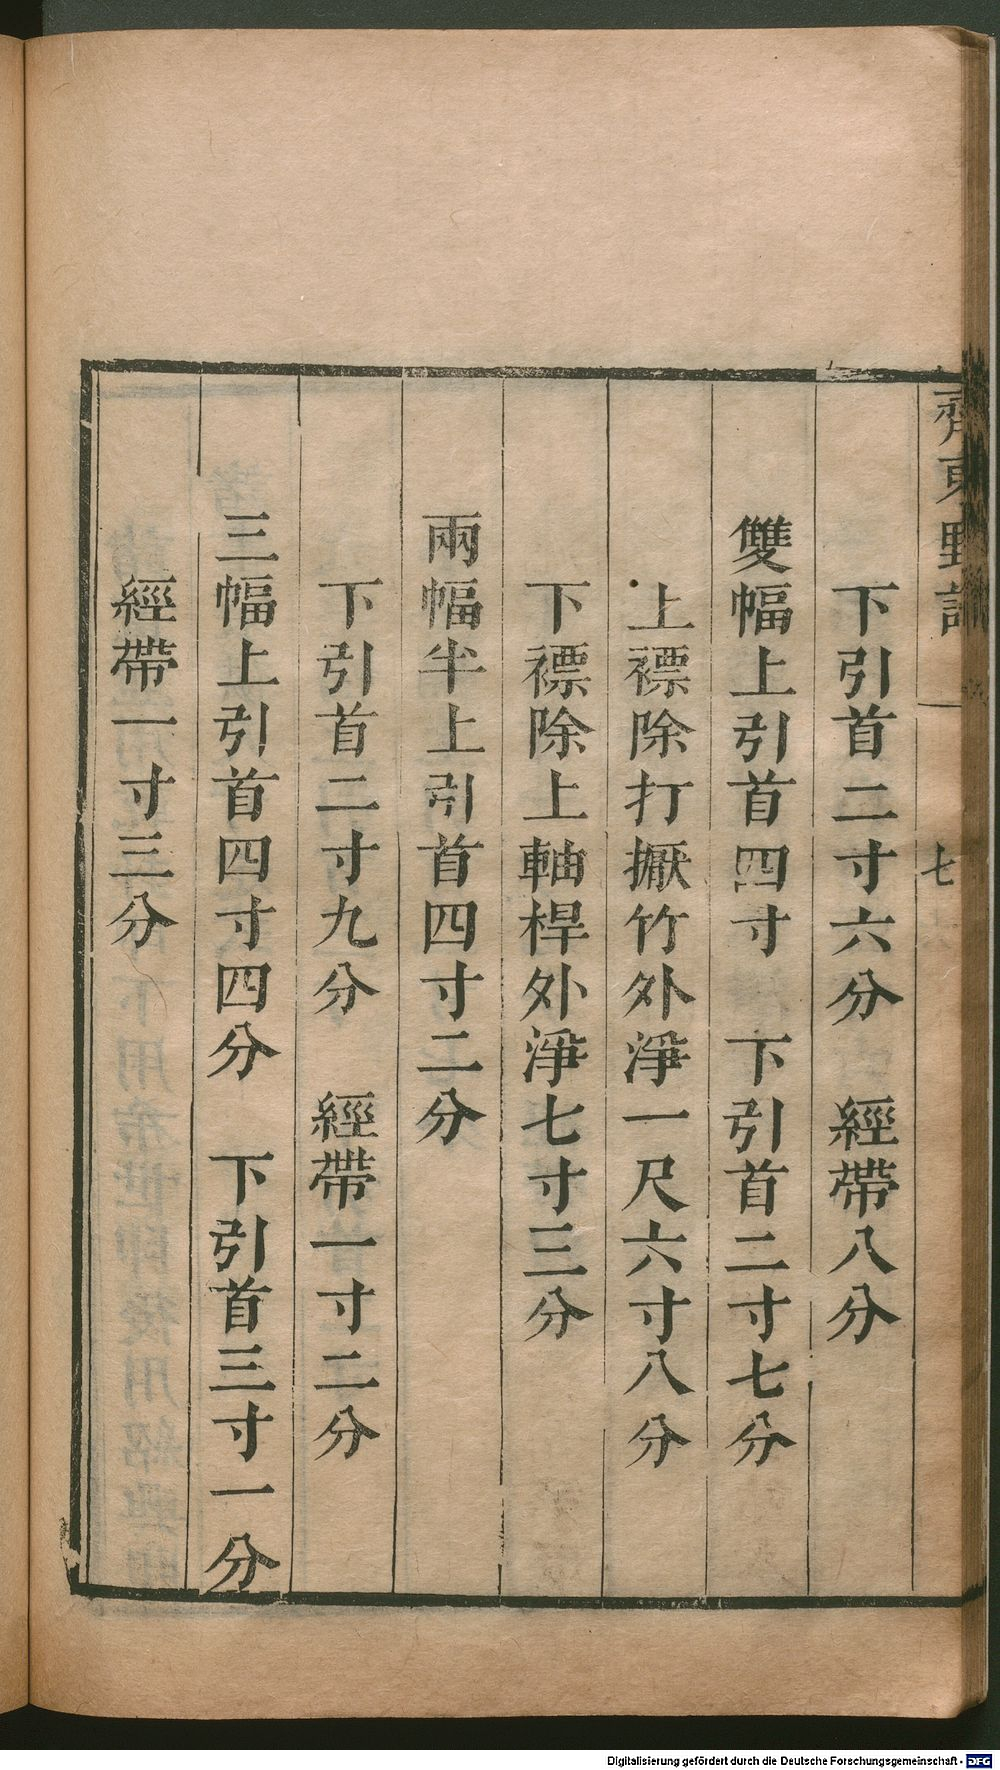 齊東野語
七
下引首二寸六分　經帶八分
雙幅上引首四寸　下引首二寸七分
上褾除打擫竹外淨一尺六寸八分
下褾除上軸桿外淨七寸三分
兩幅半上引首四寸二分
下引首二寸九分　經帶一寸二分
三幅上引首四寸四分　下引首三寸一分
經帶一寸三分
Digitalisierung gefördert durch die Deutsche Forschungsgemeinschaft - DFG